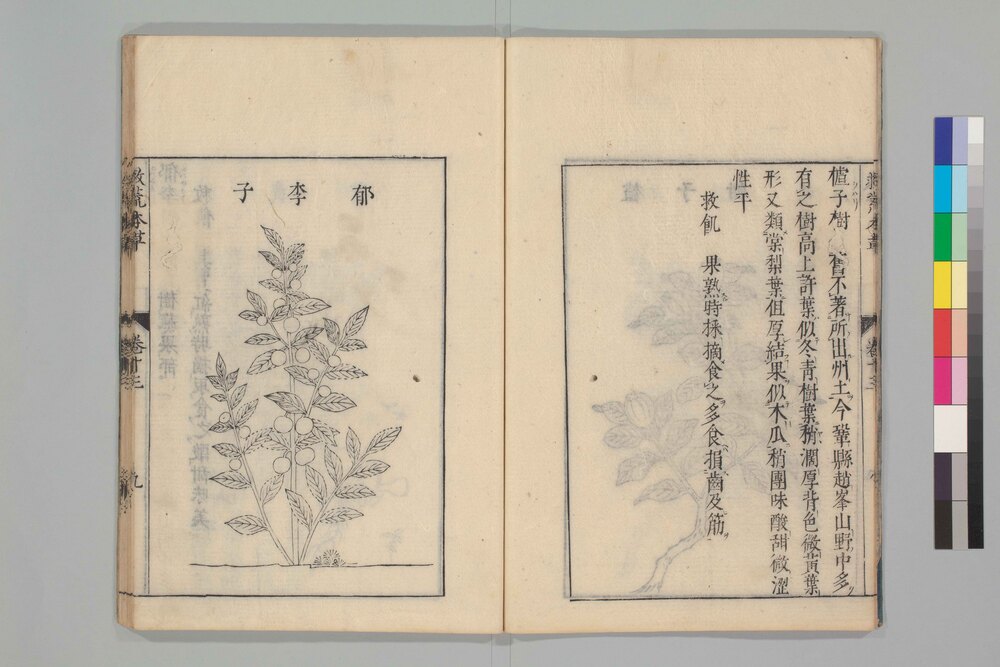 樝子樹 舊不著所出州土今鞏縣趙峯山野中多
有之樹高丈許葉似冬青樹葉稍濶厚背色微黄葉
形又類棠梨葉但厚結果似木瓜稍團味酸甜微澀
性平
救飢 果熟時採摘食之多食損齒及筋
郁李子
救荒本草
卷十三
九